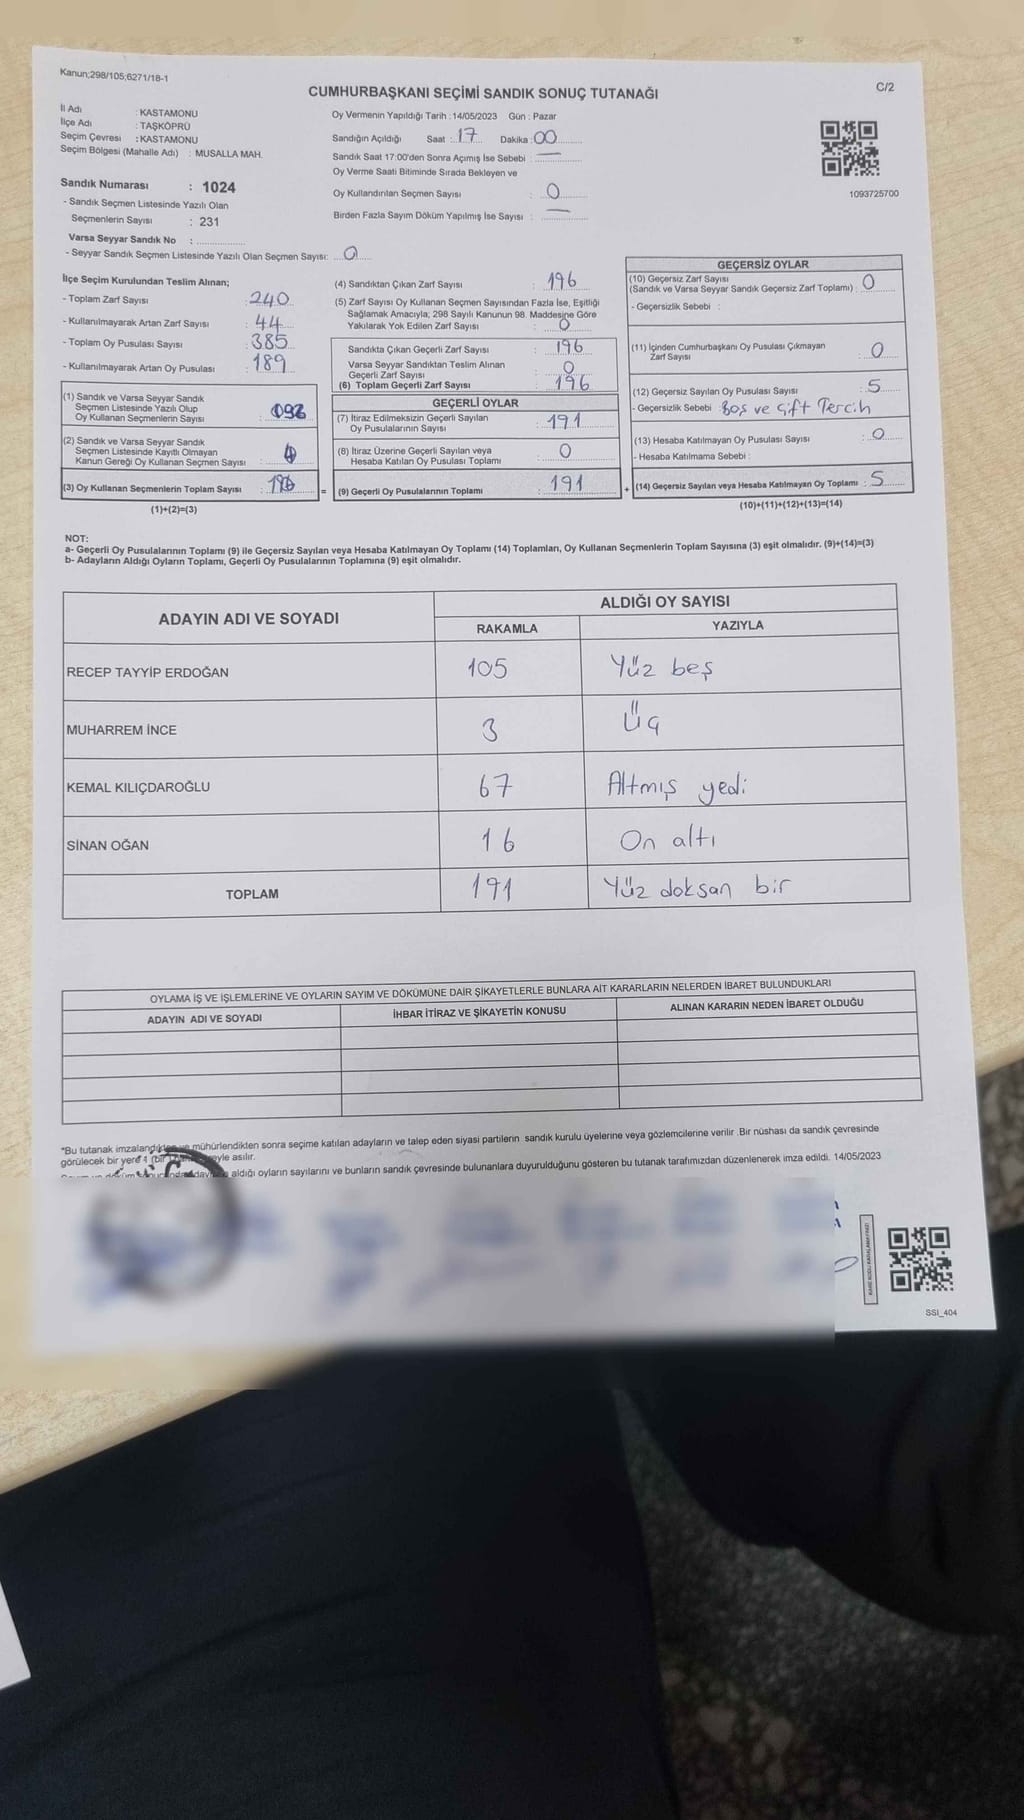 Kanun;298/105;6271/18-1
C/2
CUMHURBAŞKANI SEÇİMİ SANDIK SONUÇ TUTANAĞI
İl Adı : KASTAMONU
İlçe Adı : TAŞKÖPRÜ
Seçim Çevresi : KASTAMONU
Seçim Bölgesi (Mahalle Adı) : MUSALLA MAH.
Sandık Numarası : 1024
- Sandık Seçmen Listesinde Yazılı Olan
Seçmenlerin Sayısı : 231
Varsa Seyyar Sandık No :
- Seyyar Sandık Seçmen Listesinde Yazılı Olan Seçmen Sayısı: 0
Oy Vermenin Yapıldığı Tarih : 14/05/2023 Gün : Pazar
Sandığın Açıldığı Saat : 17 Dakika : 00
Sandık Saat 17:00'den Sonra Açımış İse Sebebi : —
Oy Verme Saati Bitiminde Sırada Bekleyen ve
Oy Kullandırılan Seçmen Sayısı : 0
Birden Fazla Sayım Döküm Yapılmış İse Sayısı : —
1093725700
İlçe Seçim Kurulundan Teslim Alınan;
- Toplam Zarf Sayısı : 240
- Kullanılmayarak Artan Zarf Sayısı : 44
- Toplam Oy Pusulası Sayısı : 385
- Kullanılmayarak Artan Oy Pusulası : 189
(1) Sandık ve Varsa Seyyar Sandık
Seçmen Listesinde Yazılı Olup
Oy Kullanan Seçmenlerin Sayısı :
(2) Sandık ve Varsa Seyyar Sandık
Seçmen Listesinde Kayıtlı Olmayan
Kanun Gereği Oy Kullanan Seçmen Sayısı :
(3) Oy Kullanan Seçmenlerin Toplam Sayısı : 196
(1)+(2)=(3)
(4) Sandıktan Çıkan Zarf Sayısı : 196
(5) Zarf Sayısı Oy Kullanan Seçmen Sayısından Fazla İse, Eşitliği
Sağlamak Amacıyla; 298 Sayılı Kanunun 98. Maddesine Göre
Yakılarak Yok Edilen Zarf Sayısı : 0
Sandıkta Çıkan Geçerli Zarf Sayısı : 196
Varsa Seyyar Sandıktan Teslim Alınan
Geçerli Zarf Sayısı : 0
(6) Toplam Geçerli Zarf Sayısı : 196
GEÇERLİ OYLAR
(7) İtiraz Edilmeksizin Geçerli Sayılan
Oy Pusulalarının Sayısı : 191
(8) İtiraz Üzerine Geçerli Sayılan veya
Hesaba Katılan Oy Pusulası Toplamı : 0
= (9) Geçerli Oy Pusulalarının Toplamı : 191 +
GEÇERSİZ OYLAR
(10) Geçersiz Zarf Sayısı
(Sandık ve Varsa Seyyar Sandık Geçersiz Zarf Toplamı) : 0
- Geçersizlik Sebebi :
(11) İçinden Cumhurbaşkanı Oy Pusulası Çıkmayan
Zarf Sayısı : 0
(12) Geçersiz Sayılan Oy Pusulası Sayısı : 5
- Geçersizlik Sebebi Boş ve Çift Tercih
(13) Hesaba Katılmayan Oy Pusulası Sayısı : 0
- Hesaba Katılmama Sebebi :
(14) Geçersiz Sayılan veya Hesaba Katılmayan Oy Toplamı : 5
(10)+(11)+(12)+(13)=(14)
NOT:
a- Geçerli Oy Pusulalarının Toplamı (9) ile Geçersiz Sayılan veya Hesaba Katılmayan Oy Toplamı (14) Toplamları, Oy Kullanan Seçmenlerin Toplam Sayısına (3) eşit olmalıdır. (9)+(14)=(3)
b- Adayların Aldığı Oyların Toplamı, Geçerli Oy Pusulalarının Toplamına (9) eşit olmalıdır.
ADAYIN ADI VE SOYADI ALDIĞI OY SAYISI
RAKAMLA YAZIYLA
RECEP TAYYİP ERDOĞAN 105 Yüz beş
MUHARREM İNCE 3 Üç
KEMAL KILIÇDAROĞLU 67 Altmış yedi
SİNAN OĞAN 16 On altı
TOPLAM 191 Yüz doksan bir
OYLAMA İŞ VE İŞLEMLERİNE VE OYLARIN SAYIM VE DÖKÜMÜNE DAİR ŞİKAYETLERLE BUNLARA AİT KARARLARIN NELERDEN İBARET BULUNDUKLARI
ADAYIN ADI VE SOYADI İHBAR İTİRAZ VE ŞİKAYETİN KONUSU ALINAN KARARIN NEDEN İBARET OLDUĞU
*Bu tutanak imzalandıktan ve mühürlendikten sonra seçime katılan adayların ve talep eden siyasi partilerin sandık kurulu üyelerine veya gözlemcilerine verilir .Bir nüshası da sandık çevresinde
görülecek bir yere asılır.
aldığı oyların sayılarını ve bunların sandık çevresinde bulunanlara duyurulduğunu gösteren bu tutanak tarafımızdan düzenlenerek imza edildi. 14/05/2023
SSI_404